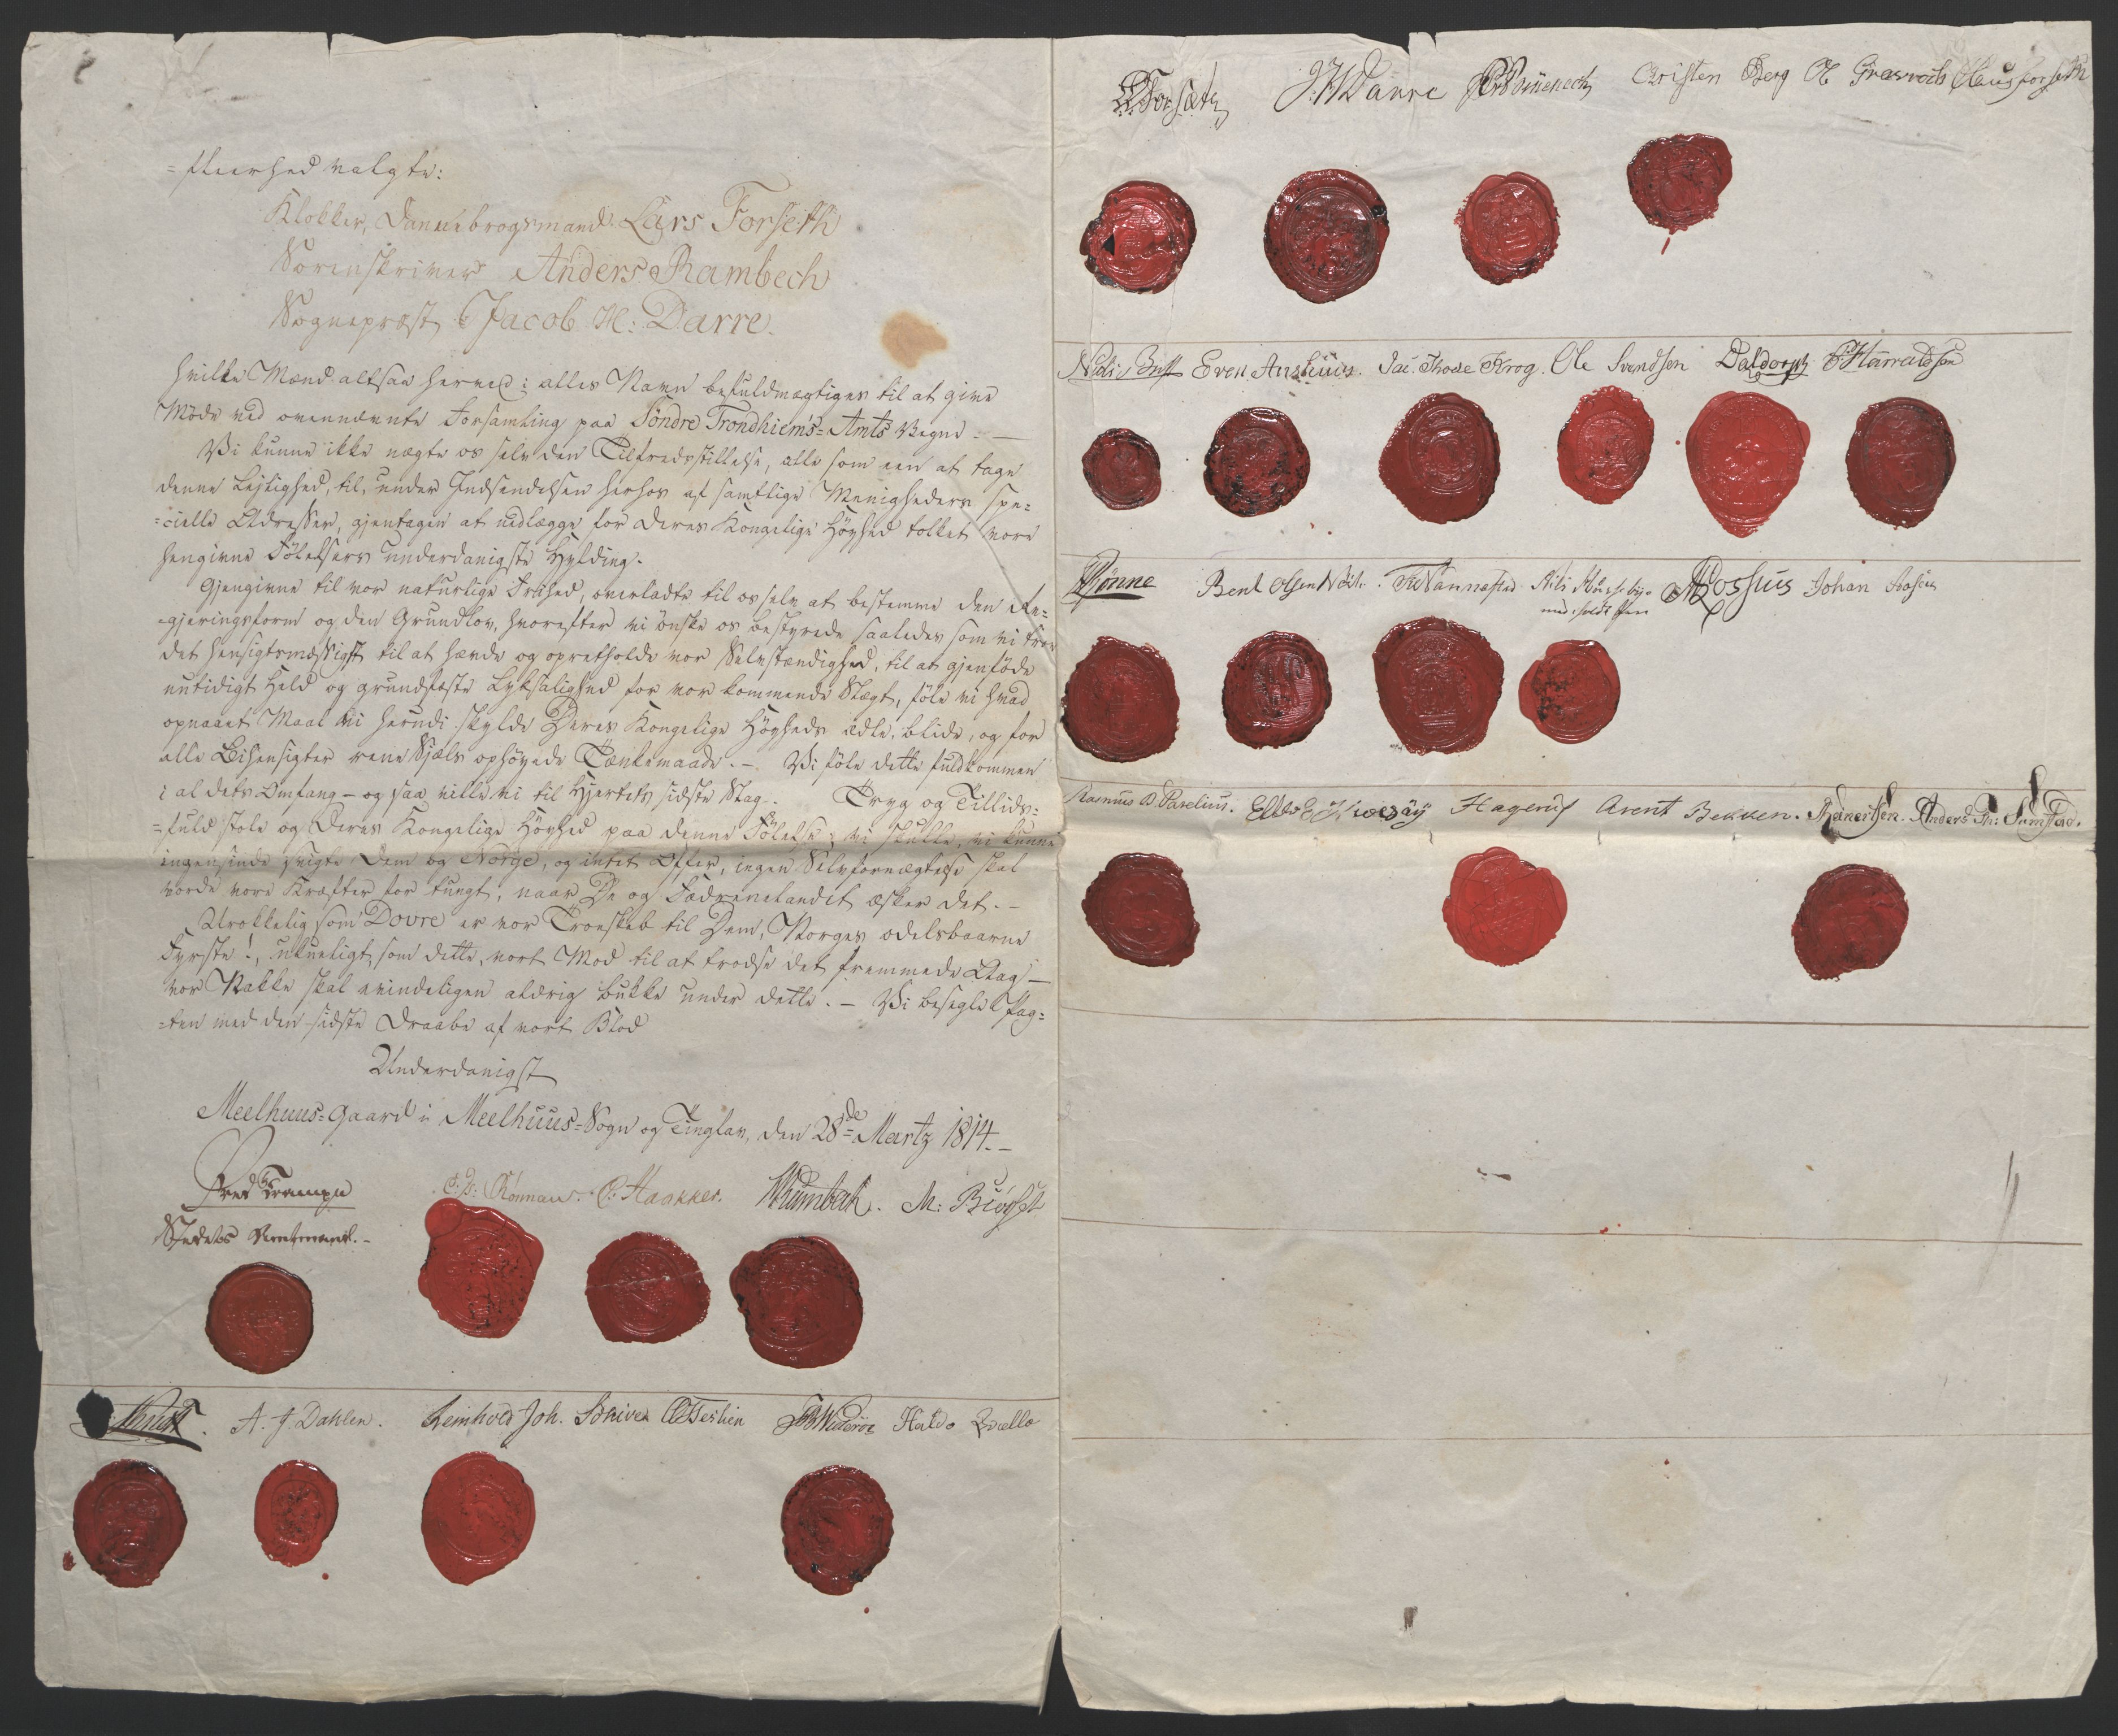 =fleerhed valgte:
Klokker, Dannebrogsmand Lars Forseth
Sorenskriver Anders Rambech
Sognepræst Jacob H: Darre.
hvilke Mænd altsaa herved i alles Navn befuldmægtiges til at give
Møde ved ovennævnte Forsamling paa Søndre Trondhiems=Amts Vegne. —
Vi kunne ikke nægte os selv den Tilfredsstillelse, alle som een at tage
denne Lejlighed, til, under Indsendelsen herhos af samtlige Menigheders spe=
=cielle Adresser, gjentagen at nedlægge for Deres Kongelige Høyhed tolket vore
hengivne Følelsers underdanigste Hylding.
Gjengivne til vor naturlige Frihed, overladte til os selv at bestemme den Re=
=gjeringsform og den Grundlov, hvorefter vi ønske os bestyrede saaledes som vi troe
det hensigtsmæssigst til at hævde og opretholde vor Selvstændighed, til at gjenføde
nutidigt Held og grundfæste Lyksalighed for vor kommende Slægt, føle vi hvad
opnaaet Maal vi herudi skylde Deres Kongelige Høyheds ædle, blide, og for
alle Bihensigter rene Sjæls ophøyede Tænkemaade. — Vi føle dette fuldkommen
i al dets Omfang — og saa ville vi til Hjertets sidste Slag. Tryg og Tillids=
=fuld stole og Deres Kongelige Høyhed paa denne Følelse; vi skulle, vi kunne
ingensinde svigte Dem og Norge, og intet Offer, ingen Selvfornægtelse skal
vorde vore Kræfter for tungt, naar De og Fædrenelandet æsker det. —
Urokkelig som Dovre er vor Troeskab til Dem, Norges odelsbaarne
Fyrste!, ukueligt, som dette, vort Mod til at trodse det fremmede Aag —
vor Nakke skal evindeligen aldrig bukke under dette. — Vi besegle Pag=
=ten med den sidste Draabe af vort Blod
Underdanigst
Meelhuus=Gaard i Meelhuus=Sogn og Tinglav, den 28de Martz 1814. —
Fred Trampe
Stedets Amtmand. —
Rønnau. C: Haokker. Rambech. M: Biørset
A. J. Dahlen. Reinhold Joh. Schive Haldo
J. H. Darre Christen Berg Ol
Even Jac. Thode Krog. Ole Svendsen Daldorph Harraldsen
Rønne Bent Olsen Nils
med iholdt Pen
Johan Aasen
Rasmus B Parelius. Hagerup Arent Bekken. Anders